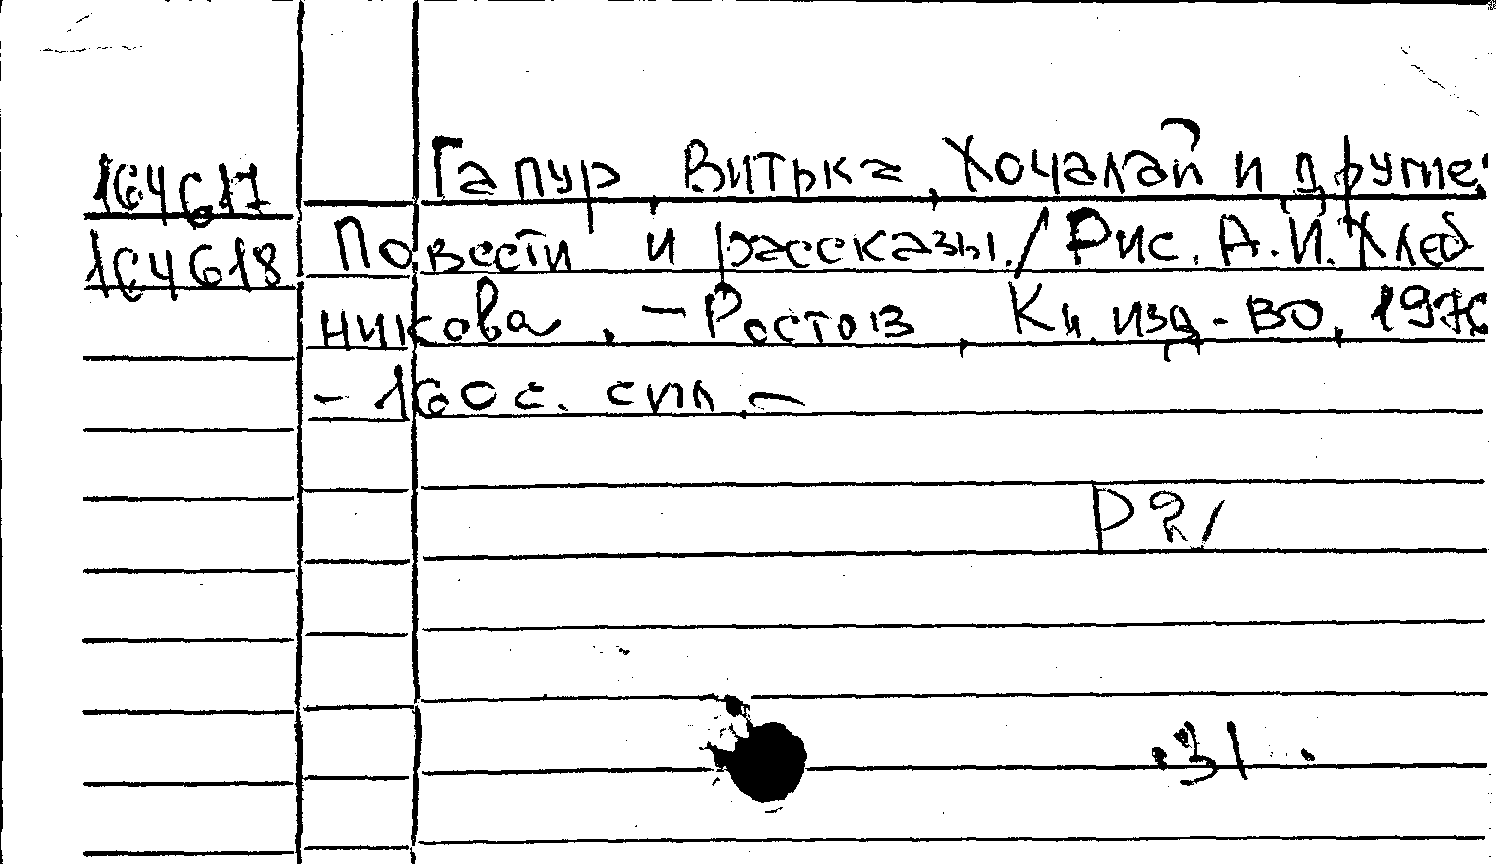 164617 Гапур, Витька, Хочалай и другие:
164618 Повести и рассказы./ Рис. А.И. Хлед
никова. - Ростов, Кн. изд-во, 1976
- 160 с. с ил. -
Р2/
31